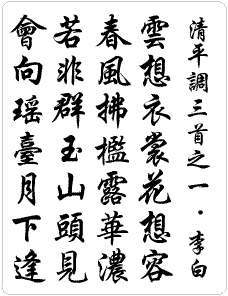 清平調三首之一・李白
雲想衣裳花想容
春風拂檻露華濃
若非群玉山頭見
會向瑶臺月下逢